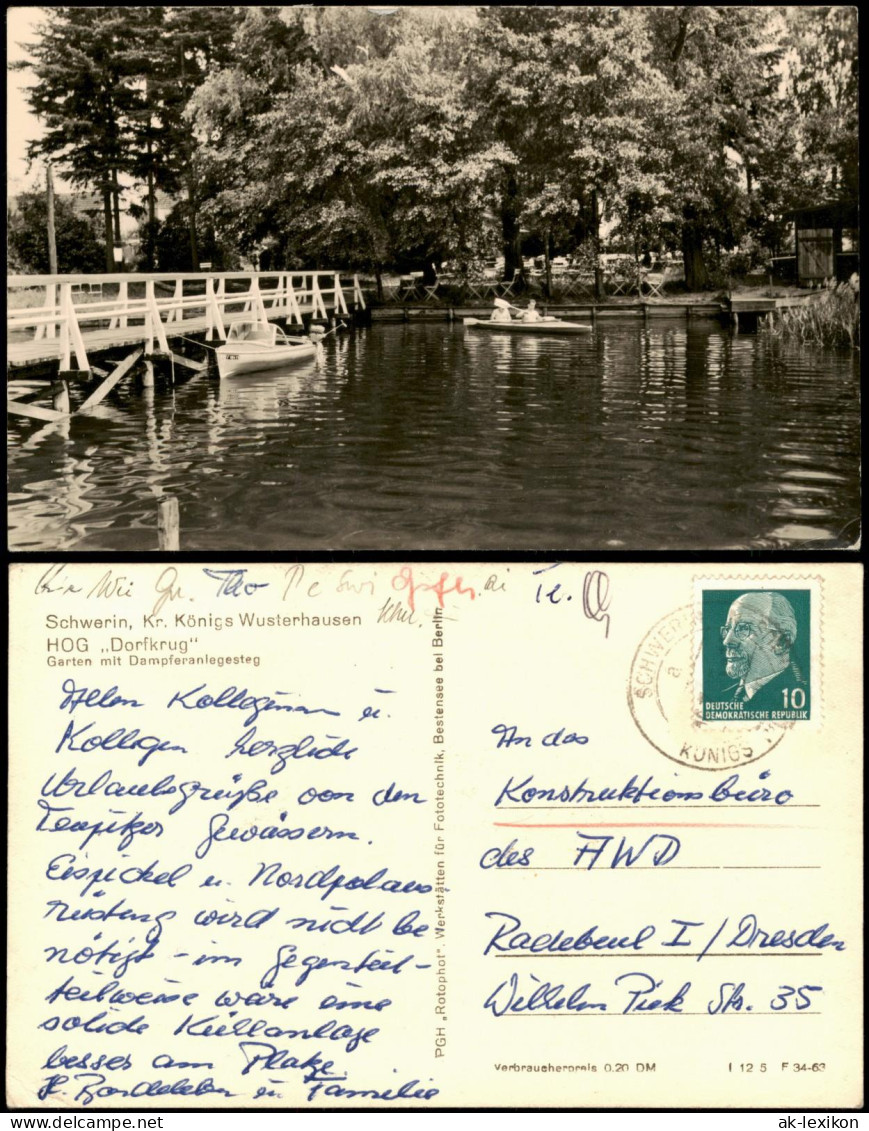 Schwerin, Kr. Königs Wusterhausen
HOG „Dorfkrug"
Garten mit Dampferanlegesteg
Allen Kolleginnen u.
Kollegen herzliche
Urlaubsgrüße von den
Teupitzer Gewässern.
Eispickel u. Nordpolaus-
rüstung wird nicht be
nötigt - im Gegenteil -
teilweise wäre eine
solide Kühlanlage
besser am Platze.
u Familie
PGH „Rotophot". Werkstätten für Fototechnik, Bestensee bei Berlin
SCHWERIN
a
KÖNIGS
DEUTSCHE
DEMOKRATISCHE REPUBLIK
10
An das
Konstruktionsbüro
des AWD
Radebeul I / Dresden
Wilhelm Piek Str. 35
Verbraucherpreis 0.20 DM
I 12 5 F 34-63
ak-lexikon